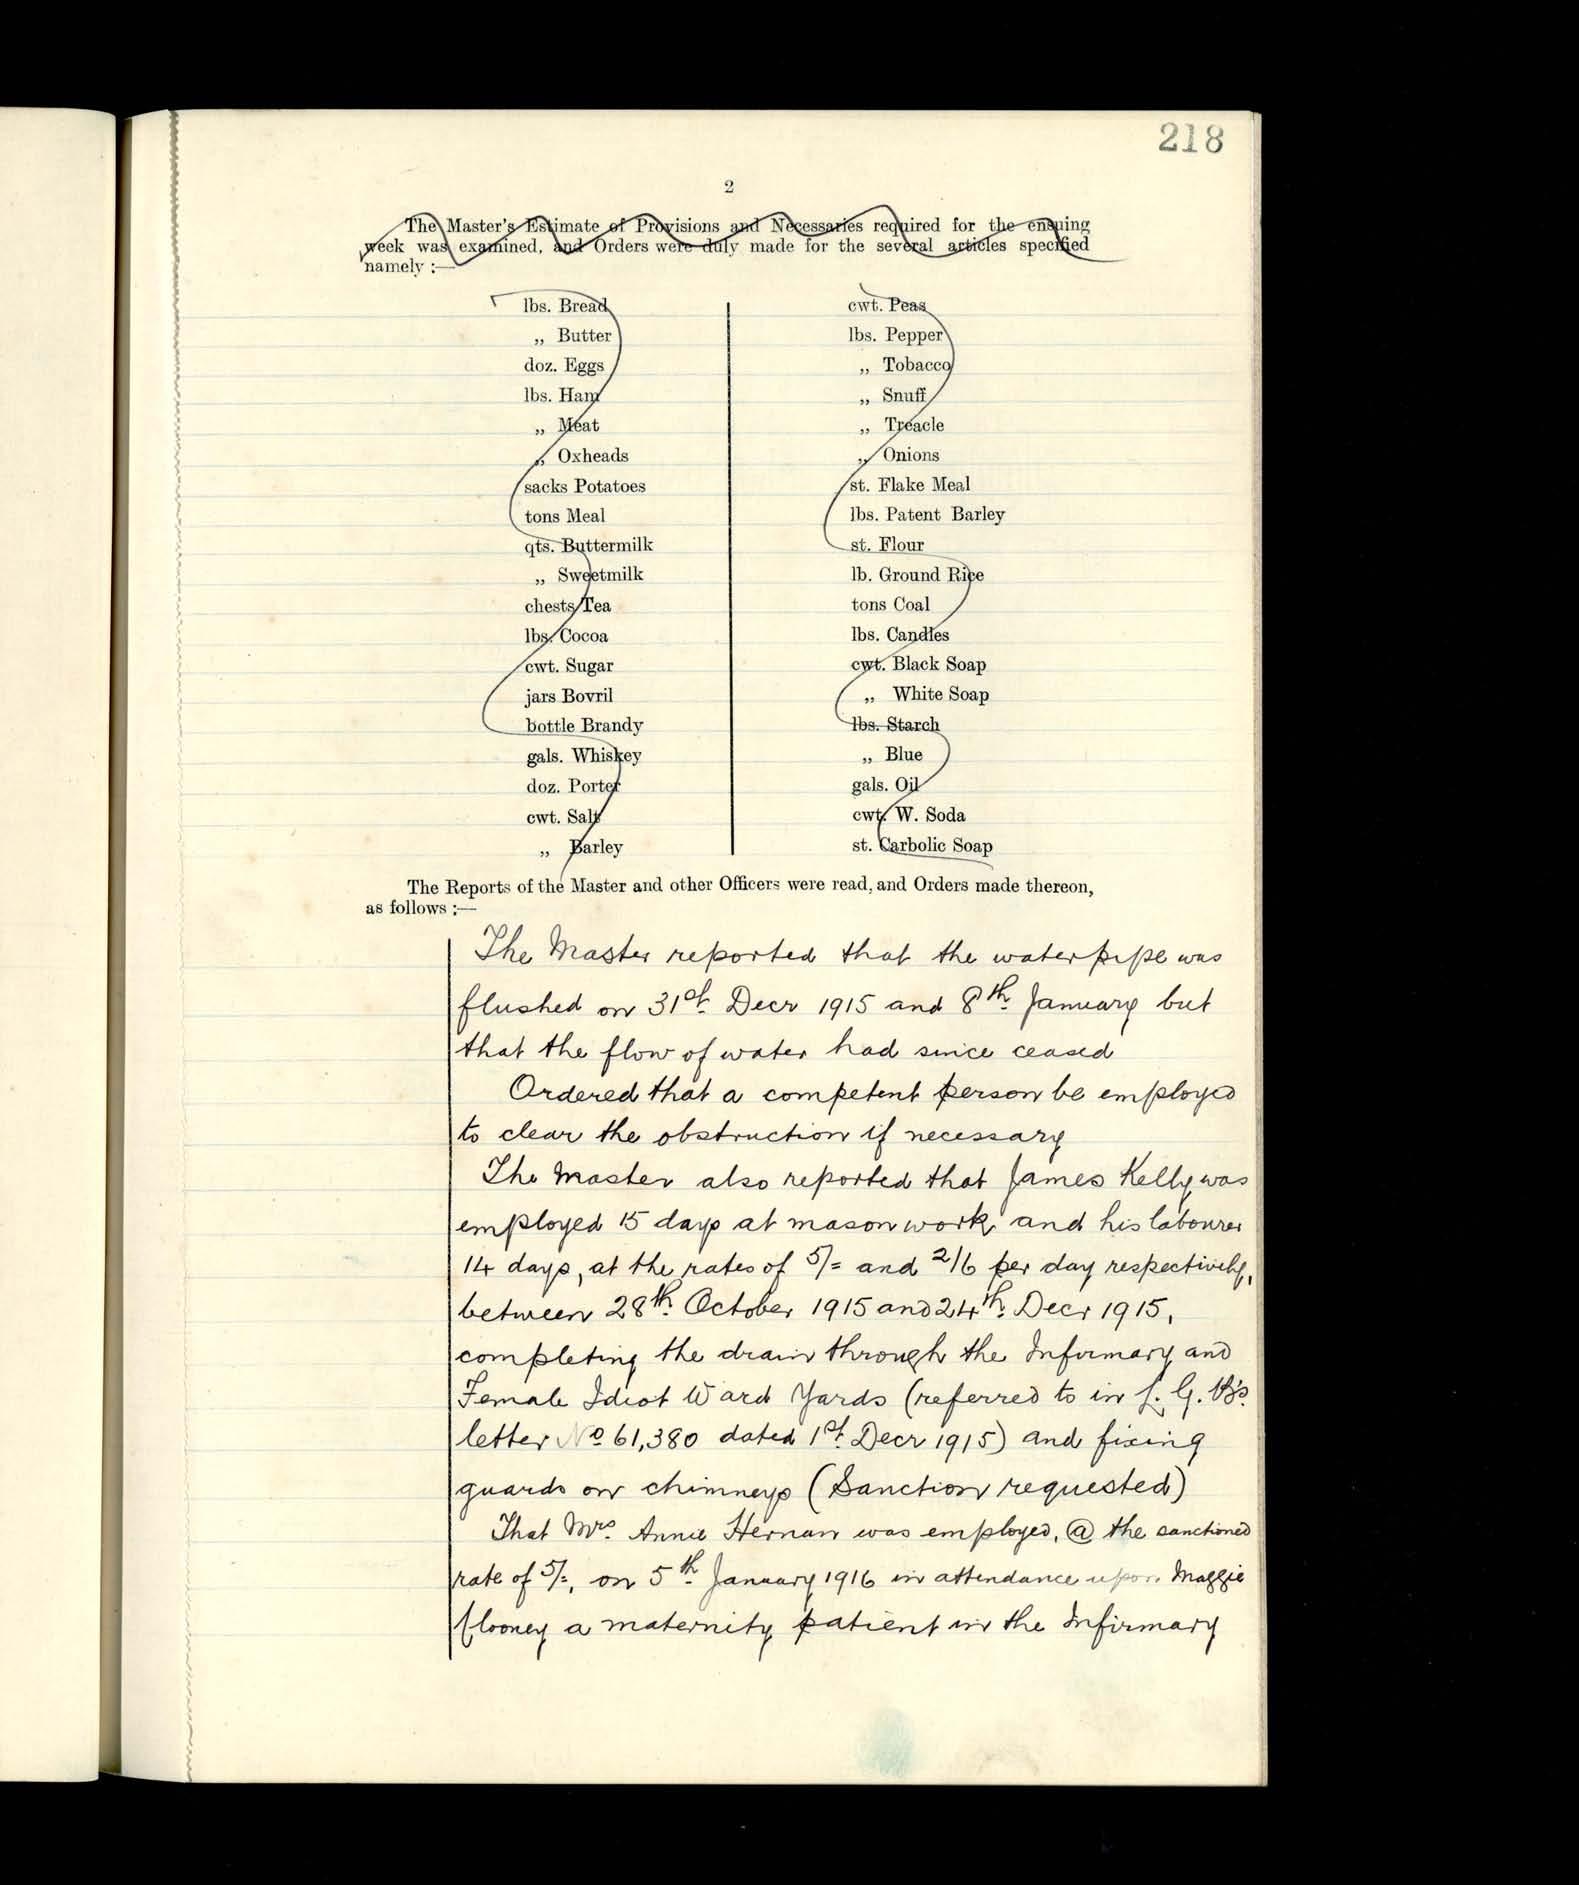 218
2
The Master's Estimate of Provisions and Necessaries required for the ensuing
week was examined, and Orders were duly made for the several articles specified
namely :—
lbs. Bread
„ Butter
doz. Eggs
lbs. Ham
„ Meat
„ Oxheads
sacks Potatoes
tons Meal
qts. Buttermilk
„ Sweetmilk
chests Tea
lbs. Cocoa
cwt. Sugar
jars Bovril
bottle Brandy
gals. Whiskey
doz. Porter
cwt. Salt
„ Barley
cwt. Peas
lbs. Pepper
„ Tobacco
„ Snuff
„ Treacle
„ Onions
st. Flake Meal
lbs. Patent Barley
st. Flour
lb. Ground Rice
tons Coal
lbs. Candles
cwt. Black Soap
„ White Soap
lbs. Starch
„ Blue
gals. Oil
cwt. W. Soda
st. Carbolic Soap
The Reports of the Master and other Officers were read, and Orders made thereon,
as follows :—
The Master reported that the water pipe was
flushed on 31st Decr 1915 and 8th January but
that the flow of water had since ceased
Ordered that a competent person be employed
to clear the obstruction if necessary
The Master also reported that James Kelly was
employed 15 days at mason work and his labourer
14 days, at the rates of 5/= and 2/6 per day respectively,
between 28th October 1915 and 24th Decr 1915,
completing the drain through the Infirmary and
Female Idiot Ward Yards (referred to in L. G. B's
letter No 61,380 dated 1st Decr 1915) and fixing
guards on chimneys (Sanction requested)
That Mrs. Annie Hernan was employed, @ the sanctioned
rate of 5/=, on 5th January 1916 in attendance upon Maggie
Clooney a maternity patient in the Infirmary